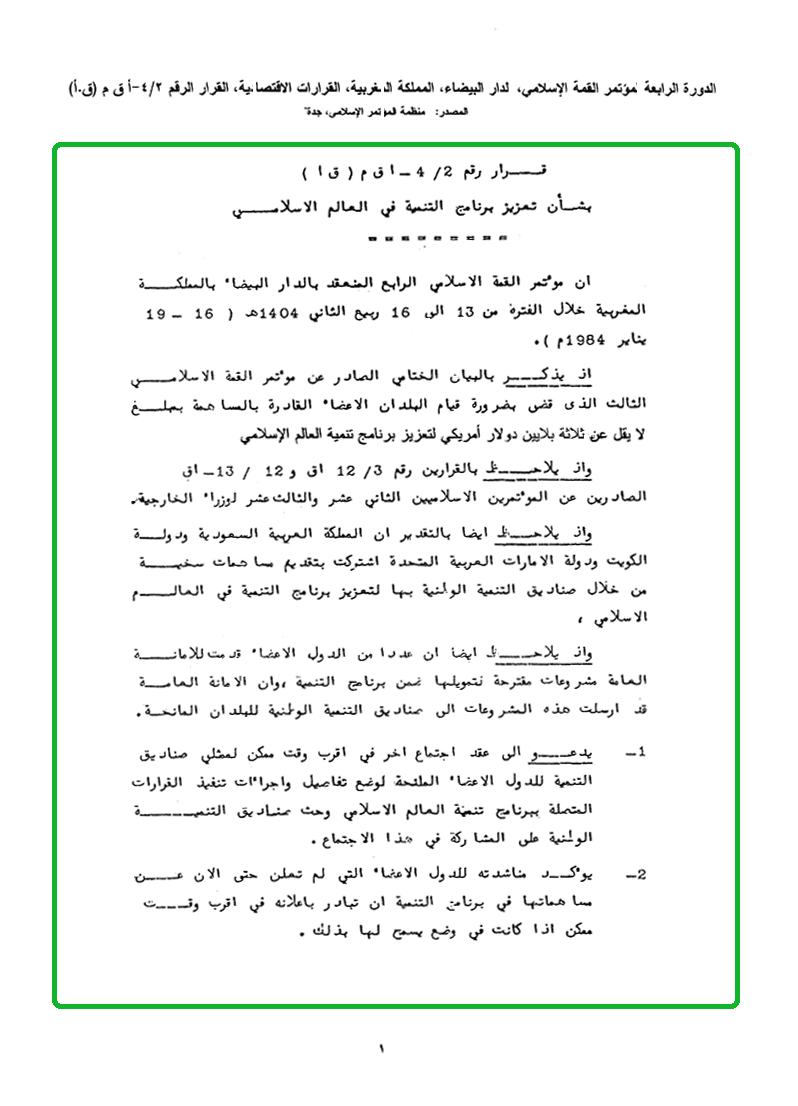 الدورة الرابعة لمؤتمر القمة الإسلامي، الدار البيضاء، المملكة المغربية، القرارات الاقتصادية، القرار الرقم ٤/٢-أ ق م (ق.أ)
المصدر: منظمة المؤتمر الإسلامي، جدة
قـــرار رقم 2/ 4 ــ ا ق م ( ق ا )
بشــأن تعزيز برنامج التنمية في العالم الاسلامـــي
= = = = = = = = =
ان مؤتمر القمة الاسلامي الرابع المنعقد بالدار البيضاء بالمملكــة
المغربية خلال الفترة من 13 الى 16 ربيع الثاني 1404هـ ( 16 – 19
يناير 1984م ).
اذ يذكـــر بالبيان الختامي الصادر عن مؤتمر القمة الاسلامـــي
الثالث الذى قضى بضرورة قيام البلدان الاعضاء القادرة بالمساهمة بمبلــغ
لا يقل عن ثلاثة بلايين دولار أمريكي لتعزيز برنامج تنمية العالم الإسلامي
واذ يلاحـــظ بالقرارين رقم 3/ 12 اق و 12 / 13– اق
الصادرين عن المؤتمرين الاسلاميين الثاني عشر والثالث عشر لوزراء الخارجية.
واذ يلاحـــظ ايضا بالتقدير ان المملكة العربية السعودية ودولــة
الكويت ودولة الامارات العربية المتحدة اشتركت بتقديم مساهمات سخيــة
من خلال صناديق التنمية الوطنية بها لتعزيز برنامج التنمية في العالــم
الاسلامي ،
واذ يلاحـــظ ايضا ان عددا من الدول الاعضاء قدمت للامانــة
العامة مشروعات مقترحة لتمويلها ضمن برنامج التنمية ،وان الامانة العامــة
قد ارسلت هذه المشروعات الى صناديق التنمية الوطنية للبلدان المانحة.
1– يدعـــو الى عقد اجتماع اخر في اقرب وقت ممكن لممثلي صناديق
التنمية للدول الاعضاء المانحة لوضع تفاصيل واجراءات تنفيذ القرارات
المتصلة ببرنامج تنمية العالم الاسلامي وحث صناديق التنميـــة
الوطنية على المشاركة في هذا الاجتماع .
2– يؤكــد مناشدته للدول الاعضاء التي لم تعلن حتى الان عـــن
مساهماتها في برنامج التنمية ان تبادر باعلانه في اقرب وقـــت
ممكن اذا كانت في وضع يسمح لها بذلك .
١